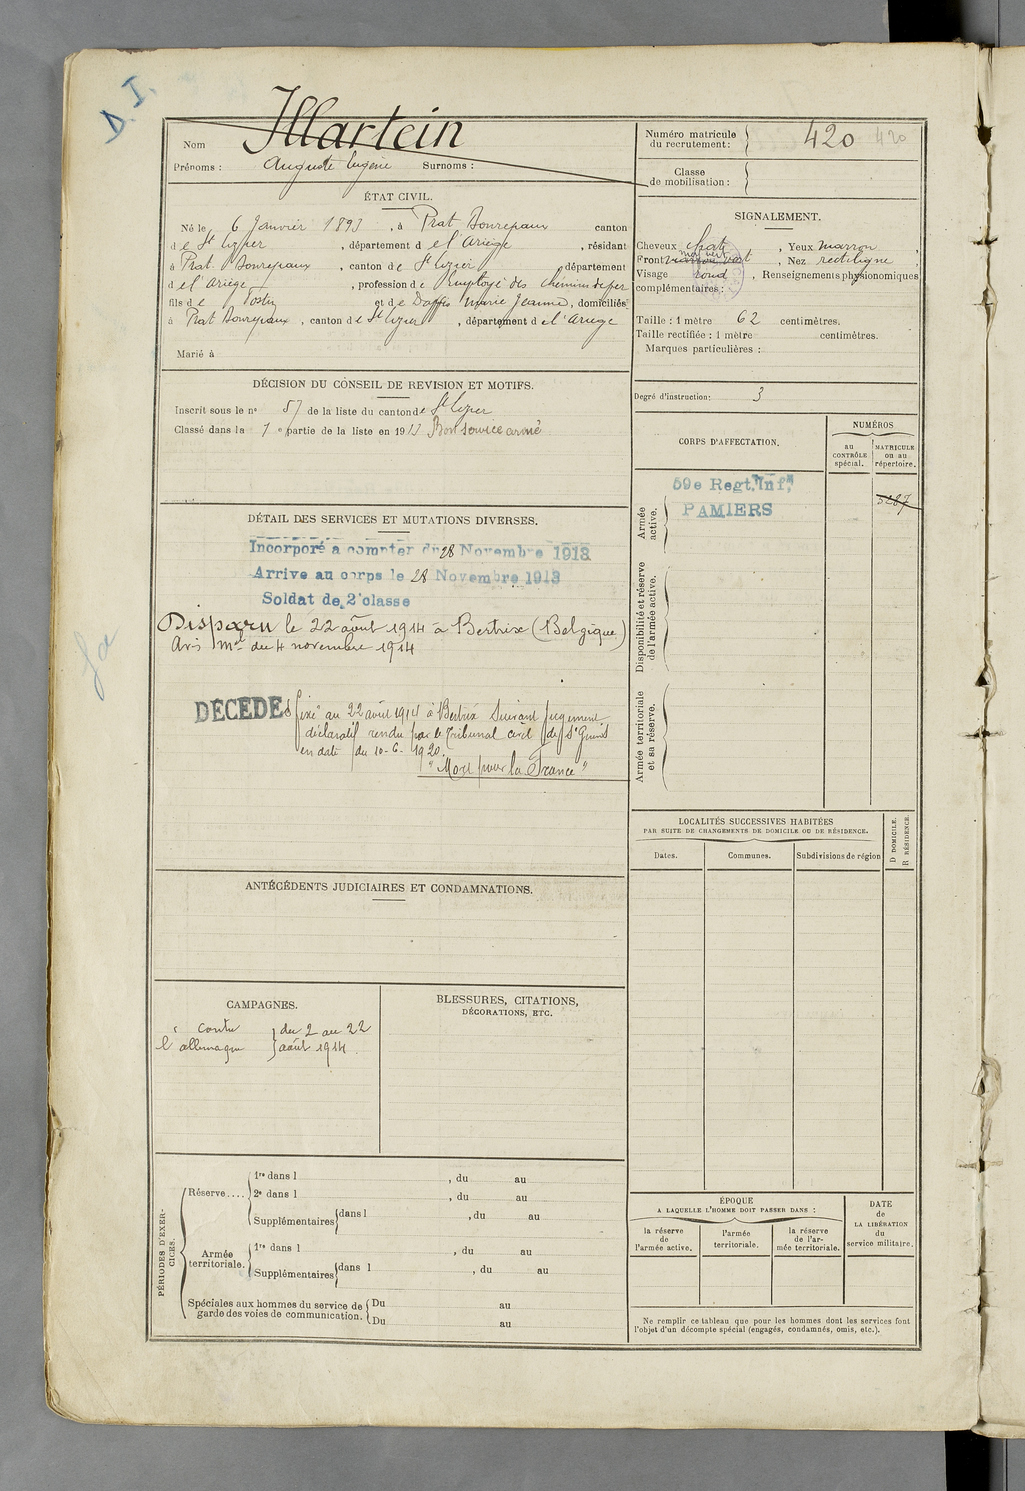 D. I.
Nom Illartein
Prénoms : Auguste Eugène Surnoms :
Numéro matricule du recrutement : 420 420
Classe de mobilisation :
ÉTAT CIVIL.
Né le 6 Janvier 1893, à Prat Bonrepaux canton
de St Lizier, département de l'Ariège, résidant
à Prat Bonrepaux, canton de St Lizier, département
d el'Ariège, profession de Employé des chemins de fer
fils de et de Daffis Marie Jeanne, domiciliés
à Prat Bonrepaux, canton de St Lizier, département de l'Ariège
Marié à
SIGNALEMENT.
Cheveux chat, Yeux marron
Front vert, Nez rectiligne
Visage rond, Renseignements physionomiques
complémentaires :
Taille : 1 mètre 62 centimètres.
Taille rectifiée : 1 mètre centimètres.
Marques particulières :
Degré d'instruction : 3
DÉCISION DU CONSEIL DE REVISION ET MOTIFS.
Inscrit sous le n° 57 de la liste du canton de St Lizier
Classé dans la 1e partie de la liste en 1913 Bon service armé
CORPS D'AFFECTATION.
NUMÉROS
AU CONTRÔLE spécial.
MATRICULE ou au répertoire.
Armée active.
59e Regt. Inf.
PAMIERS
Disponibilité et réserve de l'armée active.
Armée territoriale et sa réserve.
DÉTAIL DES SERVICES ET MUTATIONS DIVERSES.
Incorporé a compter du 28 Novembre 1913
Arrive au corps le 28 Novembre 1913
Soldat de 2e classe
Disparu le 22 août 1914 à Bertrix (Belgique)
Avis mel du 4 novembre 1914
DÉCÉDÉ fixé au 22 août 1914 à Bertrix Suivant jugement
déclaratif rendu par le Tribunal civil de St Girons
en date du 10-6-1920.
"Mort pour la France"
LOCALITÉS SUCCESSIVES HABITÉES
PAR SUITE DE CHANGEMENTS DE DOMICILE OU DE RÉSIDENCE.
Dates. Communes. Subdivisions de région
D DOMICILE.
R RÉSIDENCE.
ANTÉCÉDENTS JUDICIAIRES ET CONDAMNATIONS.
CAMPAGNES.
contre du 2 au 22
l'allemagne août 1914
BLESSURES, CITATIONS,
DÉCORATIONS, ETC.
PÉRIODES D'EXERCICES.
Réserve....
1re dans l , du au
2e dans l , du au
Supplémentaires dans l , du au
Armée territoriale.
1re dans l , du au
Supplémentaires dans l , du au
Spéciales aux hommes du service de garde des voies de communication.
Du au
Du au
ÉPOQUE
A LAQUELLE L'HOMME DOIT PASSER DANS :
la réserve de l'armée active.
l'armée territoriale.
la réserve de l'armée territoriale.
DATE de LA LIBÉRATION du service militaire.
Ne remplir ce tableau que pour les hommes dont les services font
l'objet d'un décompte spécial (engagés, condamnés, omis, etc.).